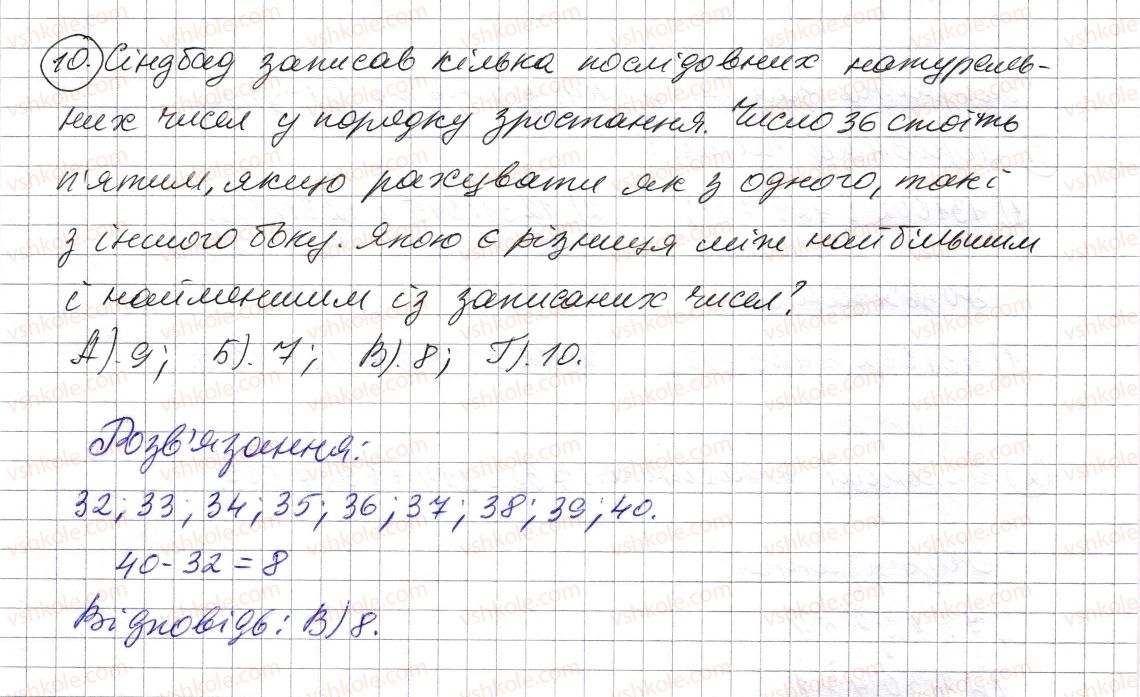 10. Сіндбад записав кілька послідовних натураль-
них чисел у порядку зростання. Число 36 стоїть
п'ятим, якщо рахувати як з одного, так і
з іншого боку. Якою є різниця між найбільшим
і найменшим із записаних чисел?
А). 9; Б). 7; В). 8; Г). 10.
Розв'язання:
32; 33; 34; 35; 36; 37; 38; 39; 40.
40 - 32 = 8
Відповідь: В) 8.